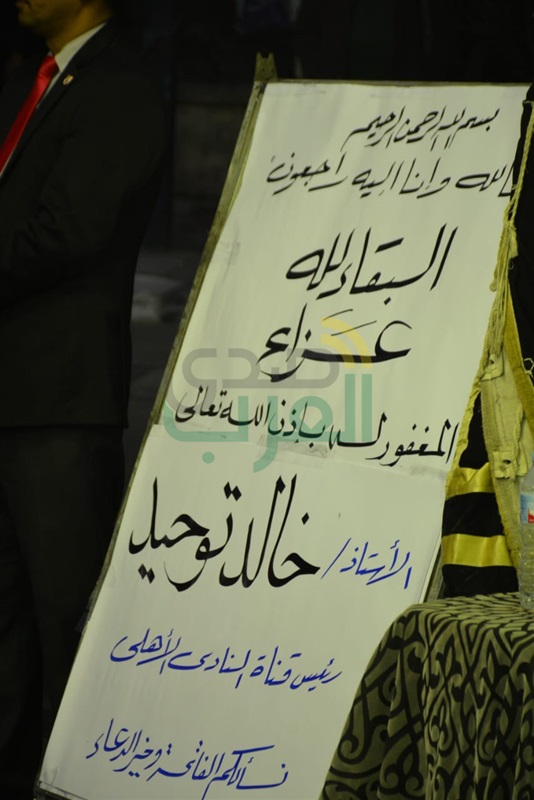 بسم الله الرحمن الرحيم
لله وإنا إليه راجعون
البقاء لله
عزاء
المغفور له بإذن الله تعالى
الأستاذ/ خالد توحيد
رئيس قناة النادى الأهلى
نسألكم الفاتحة وخير الدعاء
صدى
العرب